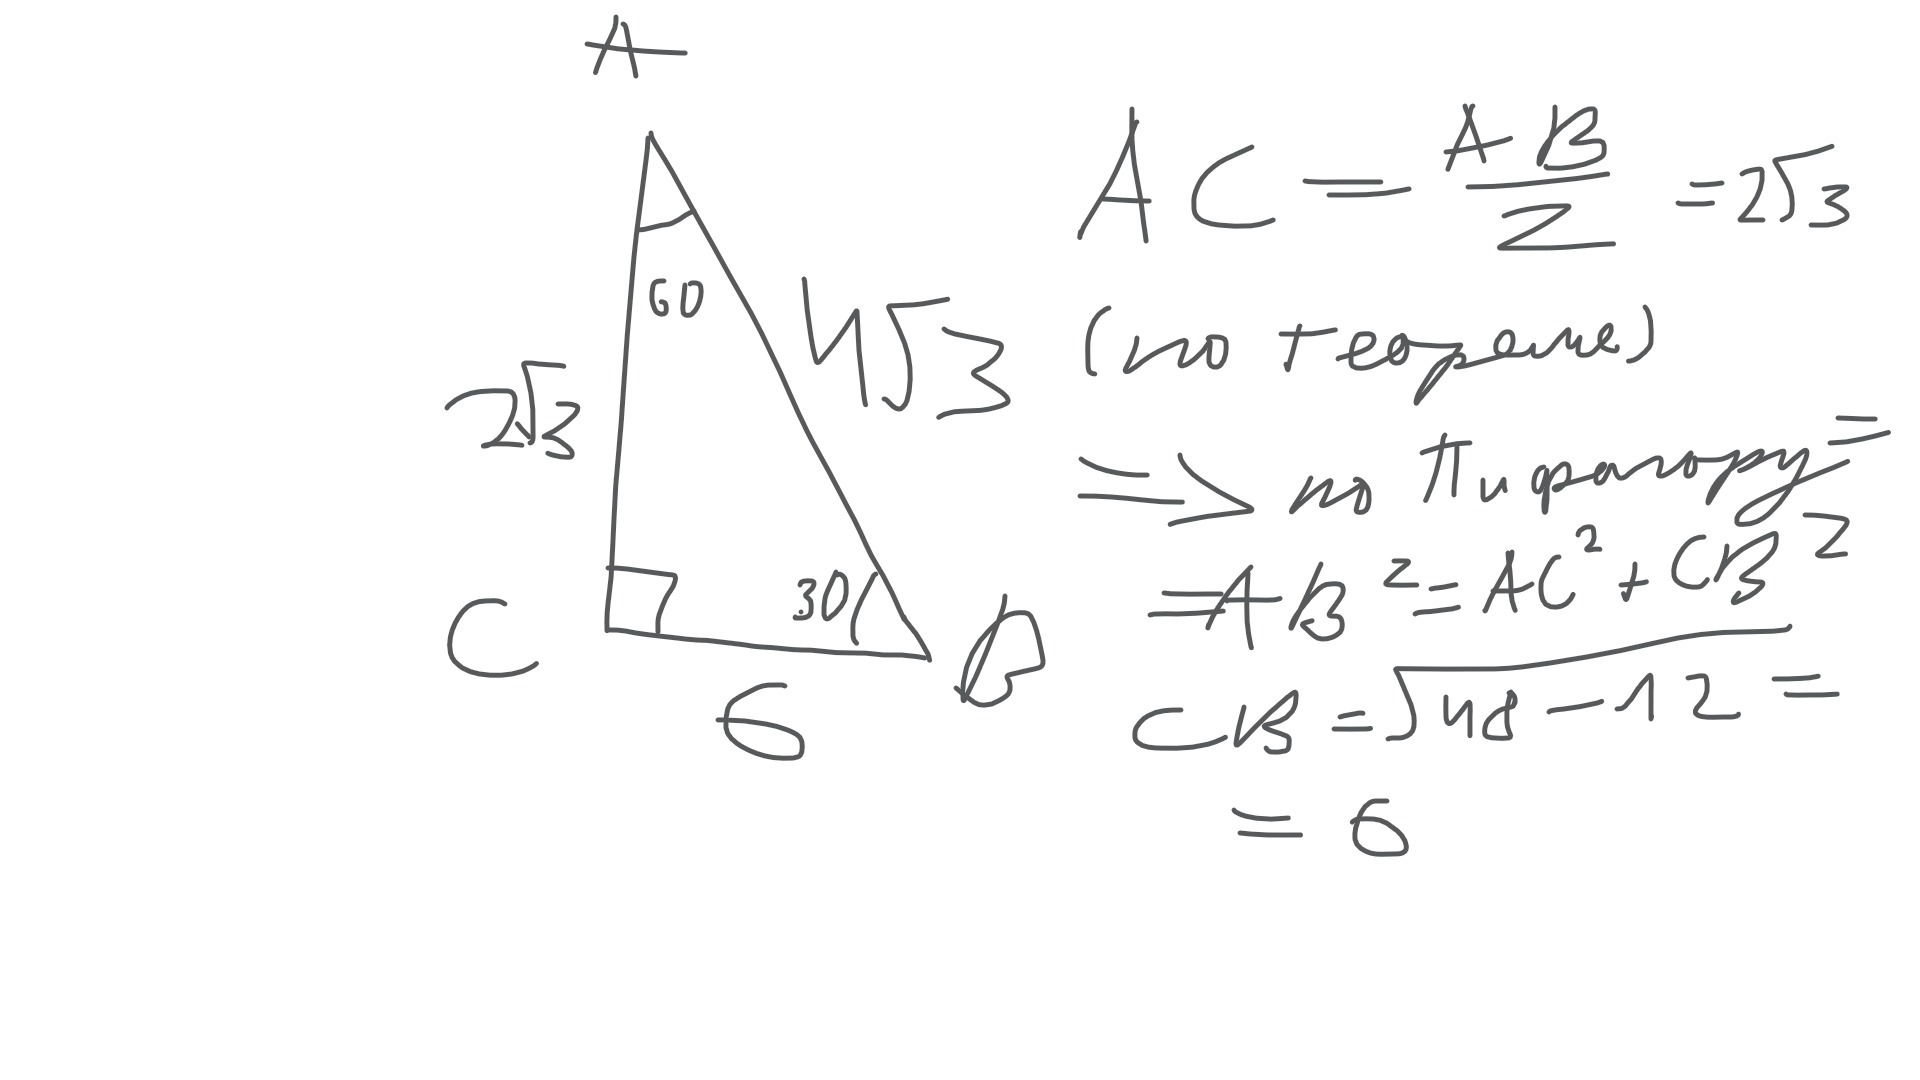 A
60
2√3
4√3
C
30
B
6
AC = AB/2 = 2√3
(по теореме)
=> по Пифагору =
= AB² = AC² + CB²
CB = √48 - 12 =
= 6